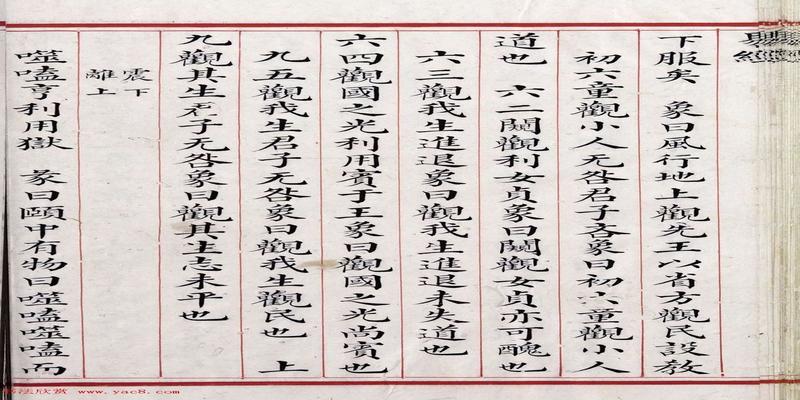 下服矣　象曰風行地上觀先王以省方觀民設教
初六童觀小人无咎君子吝象曰初六童觀小人
道也　六二闚觀利女貞象曰闚觀女貞亦可醜也
六三觀我生進退象曰觀我生進退未失道也
六四觀國之光利用賓于王象曰觀國之光尚賓也
九五觀我生君子无咎象曰觀我生觀民也　上
九觀其生君子无咎象曰觀其生志未平也
震下
離上
噬嗑亨利用獄　彖曰頤中有物曰噬嗑噬嗑而
书法欣赏 www.yac8.com